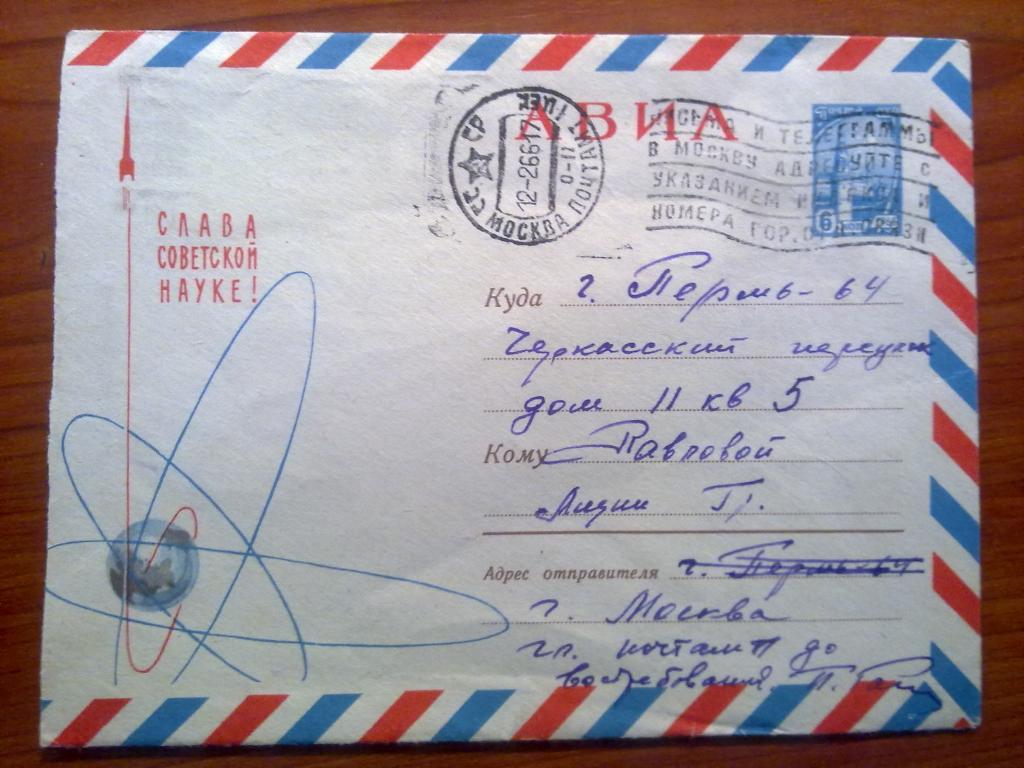 АВИА
СССР МОСКВА ПОЧТАМТ
12-26617
0-11
ПИСЬМА И ТЕЛЕГРАММЫ
В МОСКВУ АДРЕСУЙТЕ С
УКАЗАНИЕМ И
НОМЕРА ГОР. СВЯЗИ
6
СЛАВА
СОВЕТСКОЙ
НАУКЕ!
Куда г. Пермь-64
Черкасский переулок
дом 11 кв 5
Кому Павловой
Лидии Гр.
Адрес отправителя г. Пермь 64
г. Москва
гл. почтамт до
востребования. П.